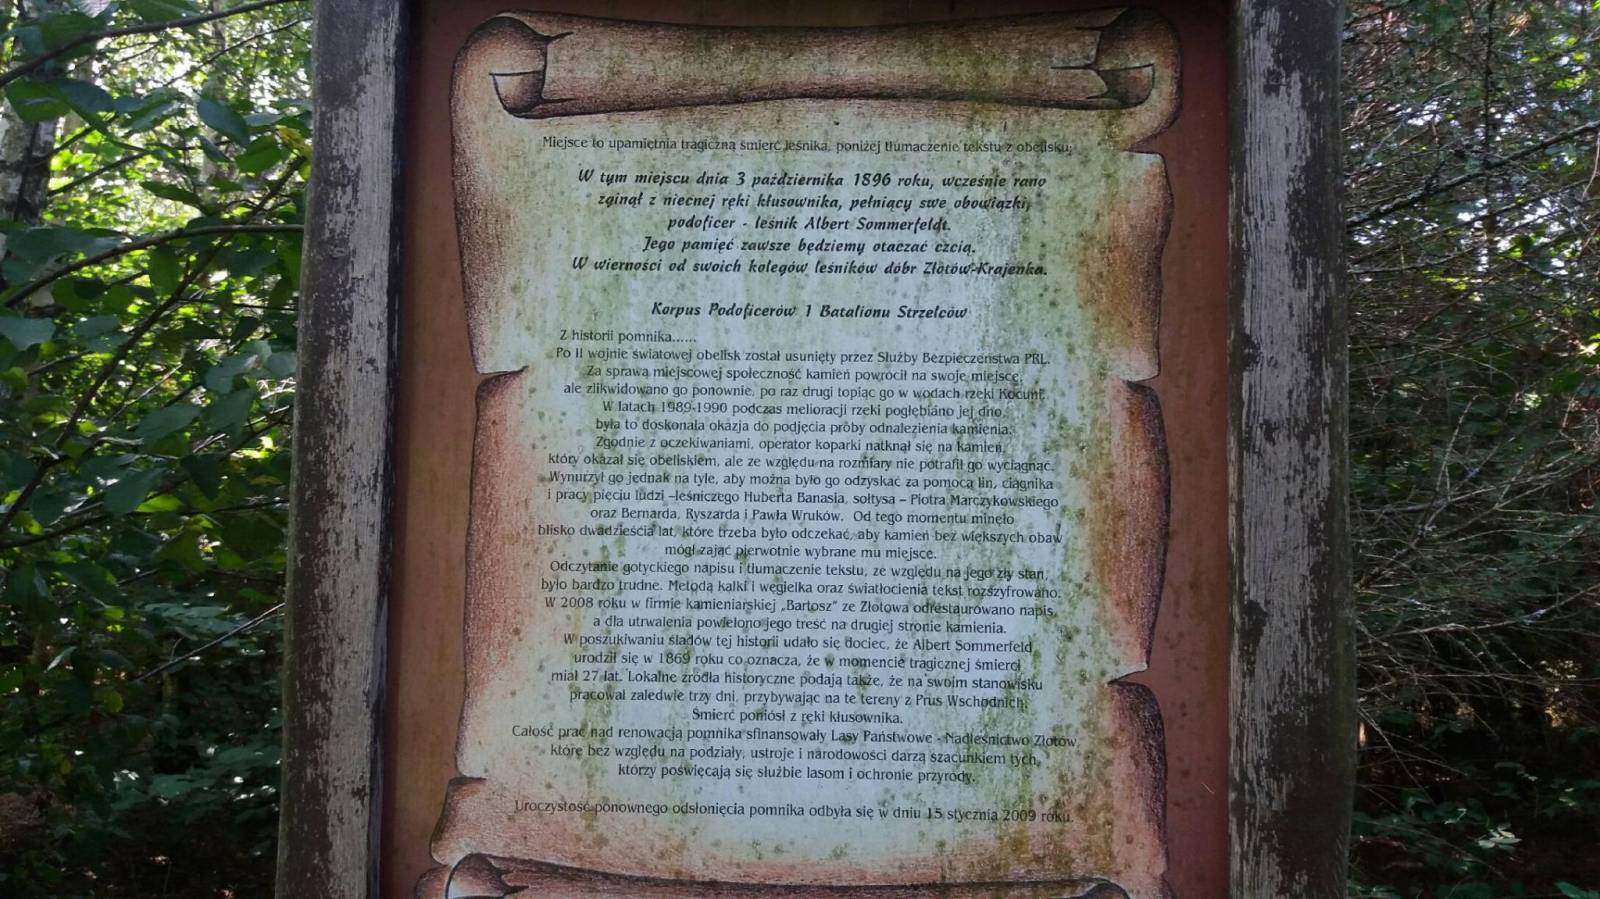 Miejsce to upamiętnia tragiczną śmierć leśnika, poniżej tłumaczenie tekstu z obelisku:
W tym miejscu dnia 3 października 1896 roku, wcześnie rano
zginął z niecnej ręki kłusownika, pełniący swe obowiązki,
podoficer - leśnik Albert Sommerfeldt.
Jego pamięć zawsze będziemy otaczać czcią.
W wierności od swoich kolegów leśników dóbr Złotów-Krajenka.
Korpus Podoficerów 1 Batalionu Strzelców
Z historii pomnika......
Po II wojnie światowej obelisk został usunięty przez Służby Bezpieczeństwa PRL.
Za sprawą miejscowej społeczność kamień powrócił na swoje miejsce,
ale zlikwidowano go ponownie, po raz drugi topiąc go w wodach rzeki Kocuni.
W latach 1989-1990 podczas melioracji rzeki pogłębiano jej dno,
była to doskonała okazja do podjęcia próby odnalezienia kamienia.
Zgodnie z oczekiwaniami, operator koparki natknął się na kamień,
który okazał się obeliskiem, ale ze względu na rozmiary nie potrafił go wyciągnąć.
Wynurzył go jednak na tyle, aby można było go odzyskać za pomocą lin, ciągnika
i pracy pięciu ludzi –leśniczego Huberta Banasia, sołtysa – Piotra Marczykowskiego
oraz Bernarda, Ryszarda i Pawła Wruków. Od tego momentu minęło
blisko dwadzieścia lat, które trzeba było odczekać, aby kamień bez większych obaw
mógł zająć pierwotnie wybrane mu miejsce.
Odczytanie gotyckiego napisu i tłumaczenie tekstu, ze względu na jego zły stan,
było bardzo trudne. Metodą kalki i węgielka oraz światłocienia tekst rozszyfrowano.
W 2008 roku w firmie kamieniarskiej „Bartosz" ze Złotowa odrestaurowano napis,
a dla utrwalenia powielono jego treść na drugiej stronie kamienia.
W poszukiwaniu śladów tej historii udało się dociec, że Albert Sommerfeld
urodził się w 1869 roku co oznacza, że w momencie tragicznej śmierci
miał 27 lat. Lokalne źródła historyczne podają także, że na swoim stanowisku
pracował zaledwie trzy dni, przybywając na te tereny z Prus Wschodnich.
Śmierć poniósł z ręki kłusownika.
Całość prac nad renowacją pomnika sfinansowały Lasy Państwowe - Nadleśnictwo Złotów,
które bez względu na podziały, ustroje i narodowości darzą szacunkiem tych,
którzy poświęcają się służbie lasom i ochronie przyrody.
Uroczystość ponownego odsłonięcia pomnika odbyła się w dniu 15 stycznia 2009 roku.